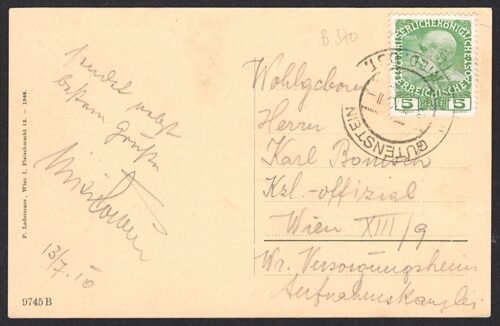 B 370
sendet nebst
besten Grüßen
13/7.10
P. Ledermann, Wien I, Fleischmarkt 12. — 1908.
9745 B
Wohlgeboren
Herrn
Karl
Kzl-offizial
Wien XIII/9
Wr. Versorgungsheim
Aufnahmskanzlei
GUTENSTEIN
1908
5 HELLER 5